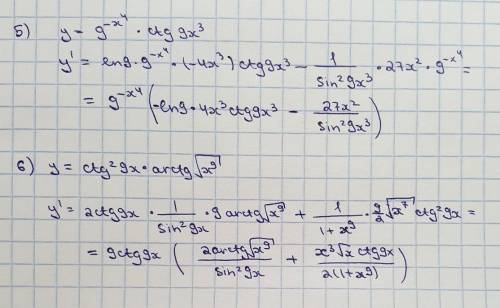 5) y = 9^{-x^4} · ctg 9x^3
y' = ln9 · 9^{-x^4} · (-4x^3) ctg9x^3 - \frac{1}{sin^2 9x^3} · 27x^2 · 9^{-x^4} =
= 9^{-x^4} (-ln9 · 4x^3 ctg9x^3 - \frac{27x^2}{sin^2 9x^3})
6) y = ctg^2 9x · arctg\sqrt{x^9}
y' = 2ctg9x · \frac{1}{sin^2 9x} · 9 arctg\sqrt{x^9} + \frac{1}{1+x^9} · \frac{9}{2}\sqrt{x^7} ctg^2 9x =
= 9ctg9x (\frac{2arctg\sqrt{x^9}}{sin^2 9x} + \frac{x^3\sqrt{x} ctg9x}{2(1+x^9)})